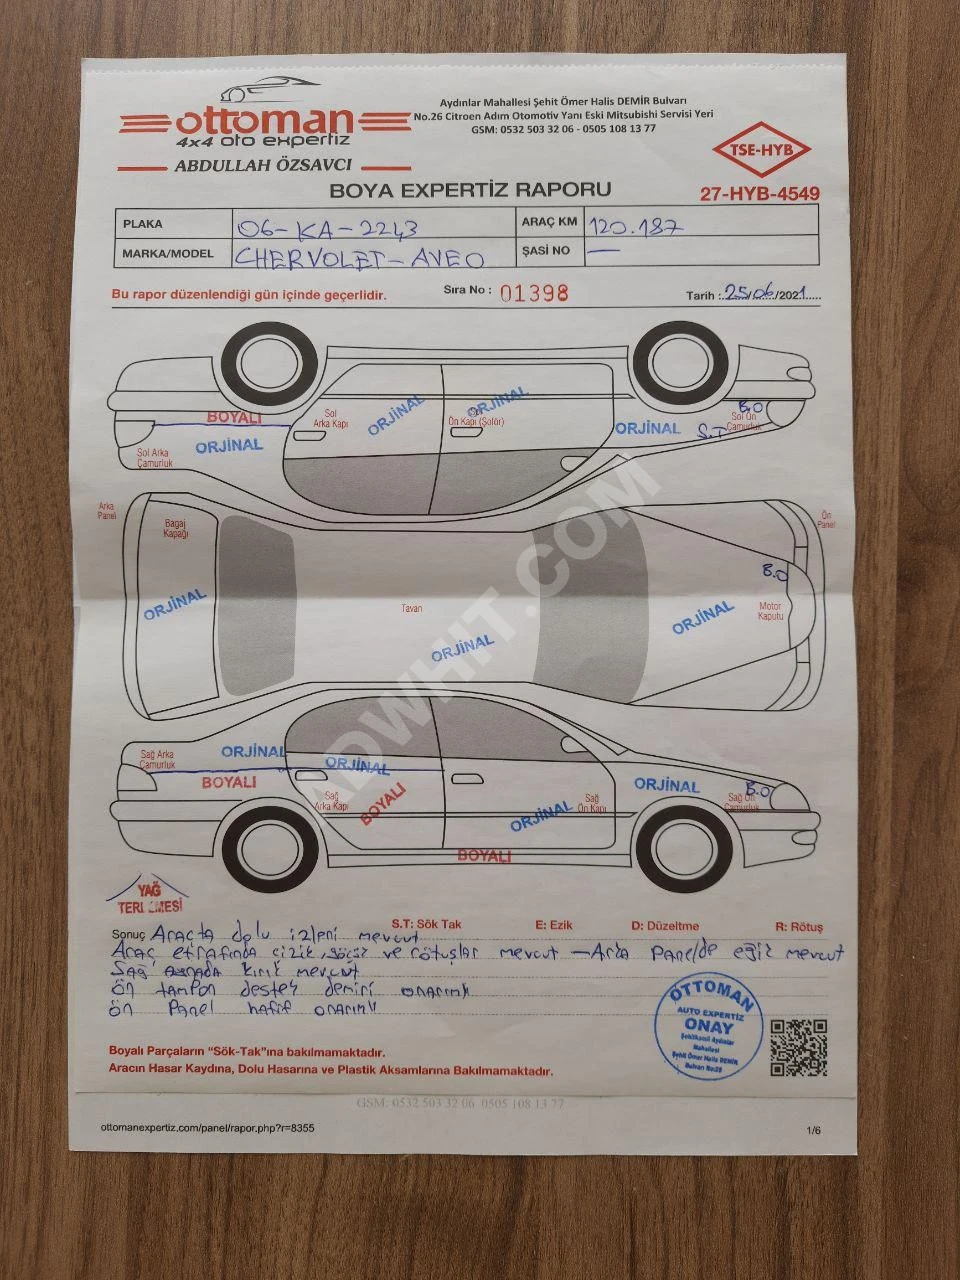 ottoman
4x4 oto expertiz
ABDULLAH ÖZSAVCI
Aydınlar Mahallesi Şehit Ömer Halis DEMİR Bulvarı
No.26 Citroen Adım Otomotiv Yanı Eski Mitsubishi Servisi Yeri
GSM: 0532 503 32 06 - 0505 108 13 77
TSE-HYB
27-HYB-4549
BOYA EXPERTİZ RAPORU
PLAKA 06-KA-2243 ARAÇ KM 120.187
MARKA/MODEL CHERVOLET-AVEO ŞASİ NO —
Bu rapor düzenlendiği gün içinde geçerlidir. Sıra No : 01398 Tarih :..25/06/2021.....
BOYALI
ORJİNAL
Sol Arka
Çamurluk
Sol
Arka Kapı
ORJİNAL
ORJİNAL
Ön Kapı (Şoför)
ORJİNAL
S.T
B.O
Sol Ön
Çamurluk
Arka
Panel
Bagaj
Kapağı
ORJİNAL
Tavan
ORJİNAL
ORJİNAL
B.O
Motor
Kaputu
Ön
Panel
ADWHIT.COM
Sağ Arka
Çamurluk
ORJİNAL
BOYALI
ORJİNAL
Sağ
Arka Kapı
BOYALI
ORJİNAL
Sağ
Ön Kapı
ORJİNAL
B.O
Sağ Ön
Çamurluk
BOYALI
YAĞ
TERLEMESİ
S.T: Sök Tak E: Ezik D: Düzeltme R: Rötuş
Sonuç Araçta dolu izleri mevcut
Araç etrafında çizik, göçük ve rötuşlar mevcut — Arka Panelde eğik mevcut
Sağ aynada kırık mevcut
ön tampon destek demiri onarımlı
ön Panel hafif onarımlı
OTTOMAN
AUTO EXPERTIZ
ONAY
Şehitkamil Aydınlar
Mahallesi
Şehit Ömer Halis DEMİR
Bulvarı No:26
Boyalı Parçaların “Sök-Tak”ına bakılmamaktadır.
Aracın Hasar Kaydına, Dolu Hasarına ve Plastik Aksamlarına Bakılmamaktadır.
GSM: 0532 503 32 06 0505 108 13 77
ottomanexpertiz.com/panel/rapor.php?r=8355 1/6